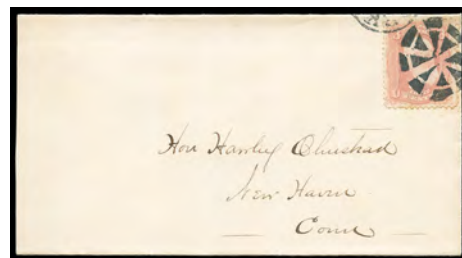 Hon Hawley Olmstead
New Haven
Conn